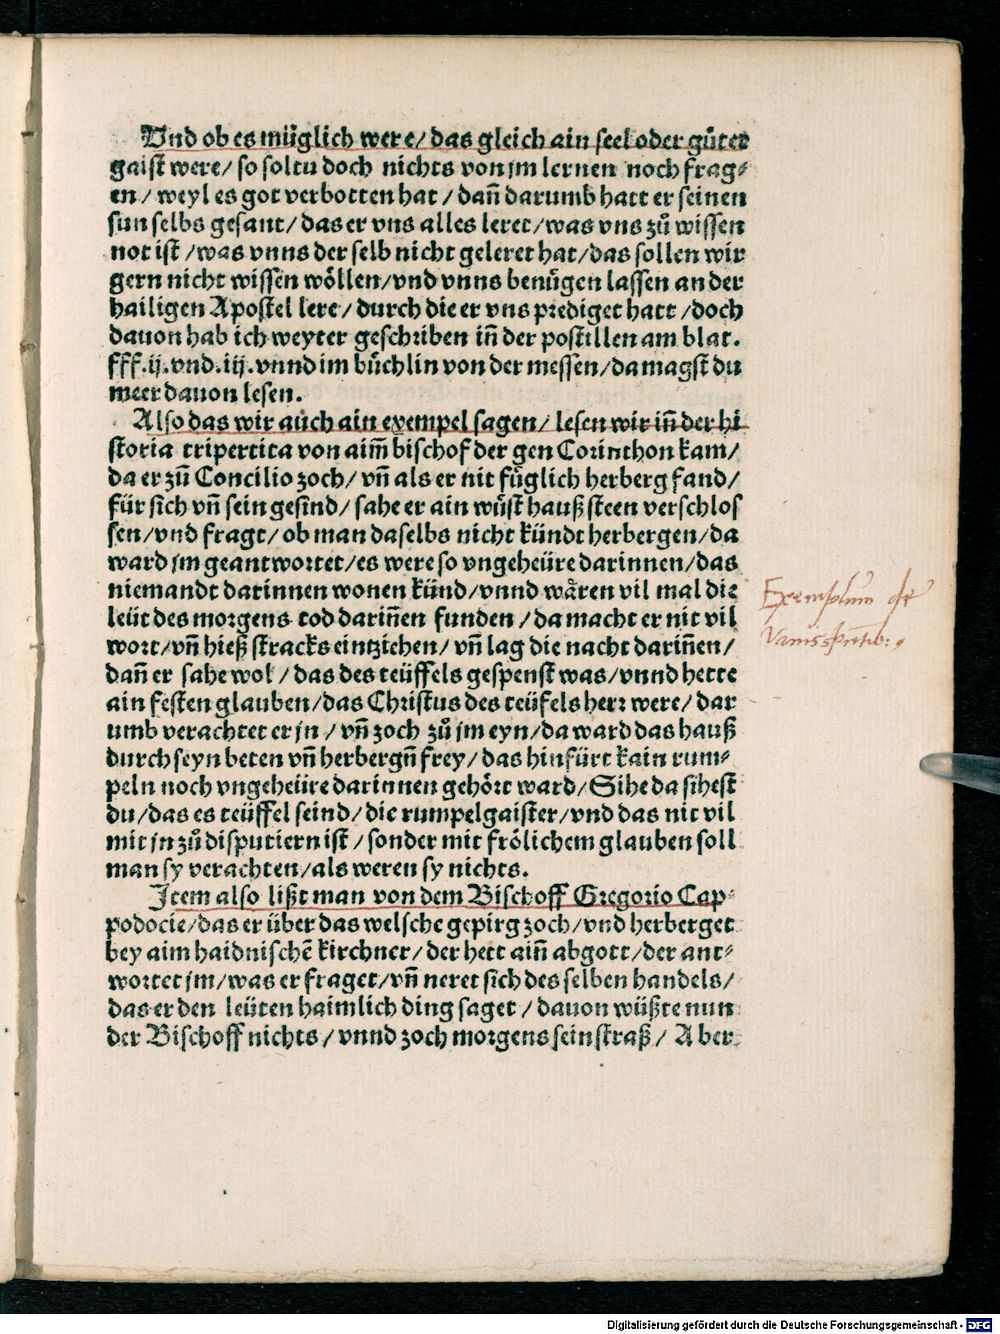 Vnd ob es müglich were/ das gleich ain seel oder gůter
gaist were/ so soltu doch nichts von jm lernen noch frag⸗
en/ weyl es got verbotten hat/ dañ darumb hatt er seinen
sun selbs gesant/ das er vns alles leret/ was vns zů wissen
not ist/ was vnns der selb nicht geleret hat/ das sollen wir
gern nicht wissen wöllen/ vnd vnns benügen lassen an der
hailigen Apostel lere/ durch die er vns prediget hatt/ doch
dauon hab ich weyter geschriben iñ der postillen am blat.
fff.ij.vnd.iij. vnnd im bůchlin von der messen/ da magst du
meer dauon lesen.
Also das wir auch ain exempel sagen/ lesen wir iñ der hi
storia tripertita von aim̃ bischof der gen Corinthon kam/
da er zů Concilio zoch/ vñ als er nit füglich herberg fand/
für sich vñ sein gesind/ sahe er ain wůst hauß steen verschlos
sen/ vnd fragt/ ob man daselbs nicht kündt herbergen/ da
ward jm geantwortet/ es were so vngeheüre darinnen/ das
niemandt darinnen wonen künd/ vnnd wåren vil mal die
leüt des morgens tod dariñen funden/ da macht er nit vil
wort/ vñ hieß stracks eintziehen/ vñ lag die nacht dariñen/
dañ er sahe wol/ das des teüffels gespenst was/ vnnd hette
ain festen glauben/ das Christus des teüfels herr were/ dar
umb verachtet er jn/ vñ zoch zů jm eyn/ da ward das hauß
durch seyn beten vñ herbergñ frey/ das hinfürt kain rum⸗
peln noch vngeheüre darinnen gehört ward/ Sihe da sihest
du/ das es teüffel seind/ die rumpelgaister/ vnd das nit vil
mit jn zů disputiern ist/ sonder mit frölichem glauben soll
man sy verachten/ als weren sy nichts.
Item also lißt man von dem Bischoff Gregorio Cap⸗
podocie/ das er über das welsche gepirg zoch/ vnd herberget
bey aim haidnischẽ kirchner/ der hett aiñ abgott/ der ant⸗
wortet jm/ was er fraget/ vñ neret sich des selben handels/
das er den leüten haimlich ding saget/ dauon wüßte nun
der Bischoff nichts/ vnnd zoch morgens sein straß/ Aber
Exemplum de
Digitalisierung gefördert durch die Deutsche Forschungsgemeinschaft - DFG